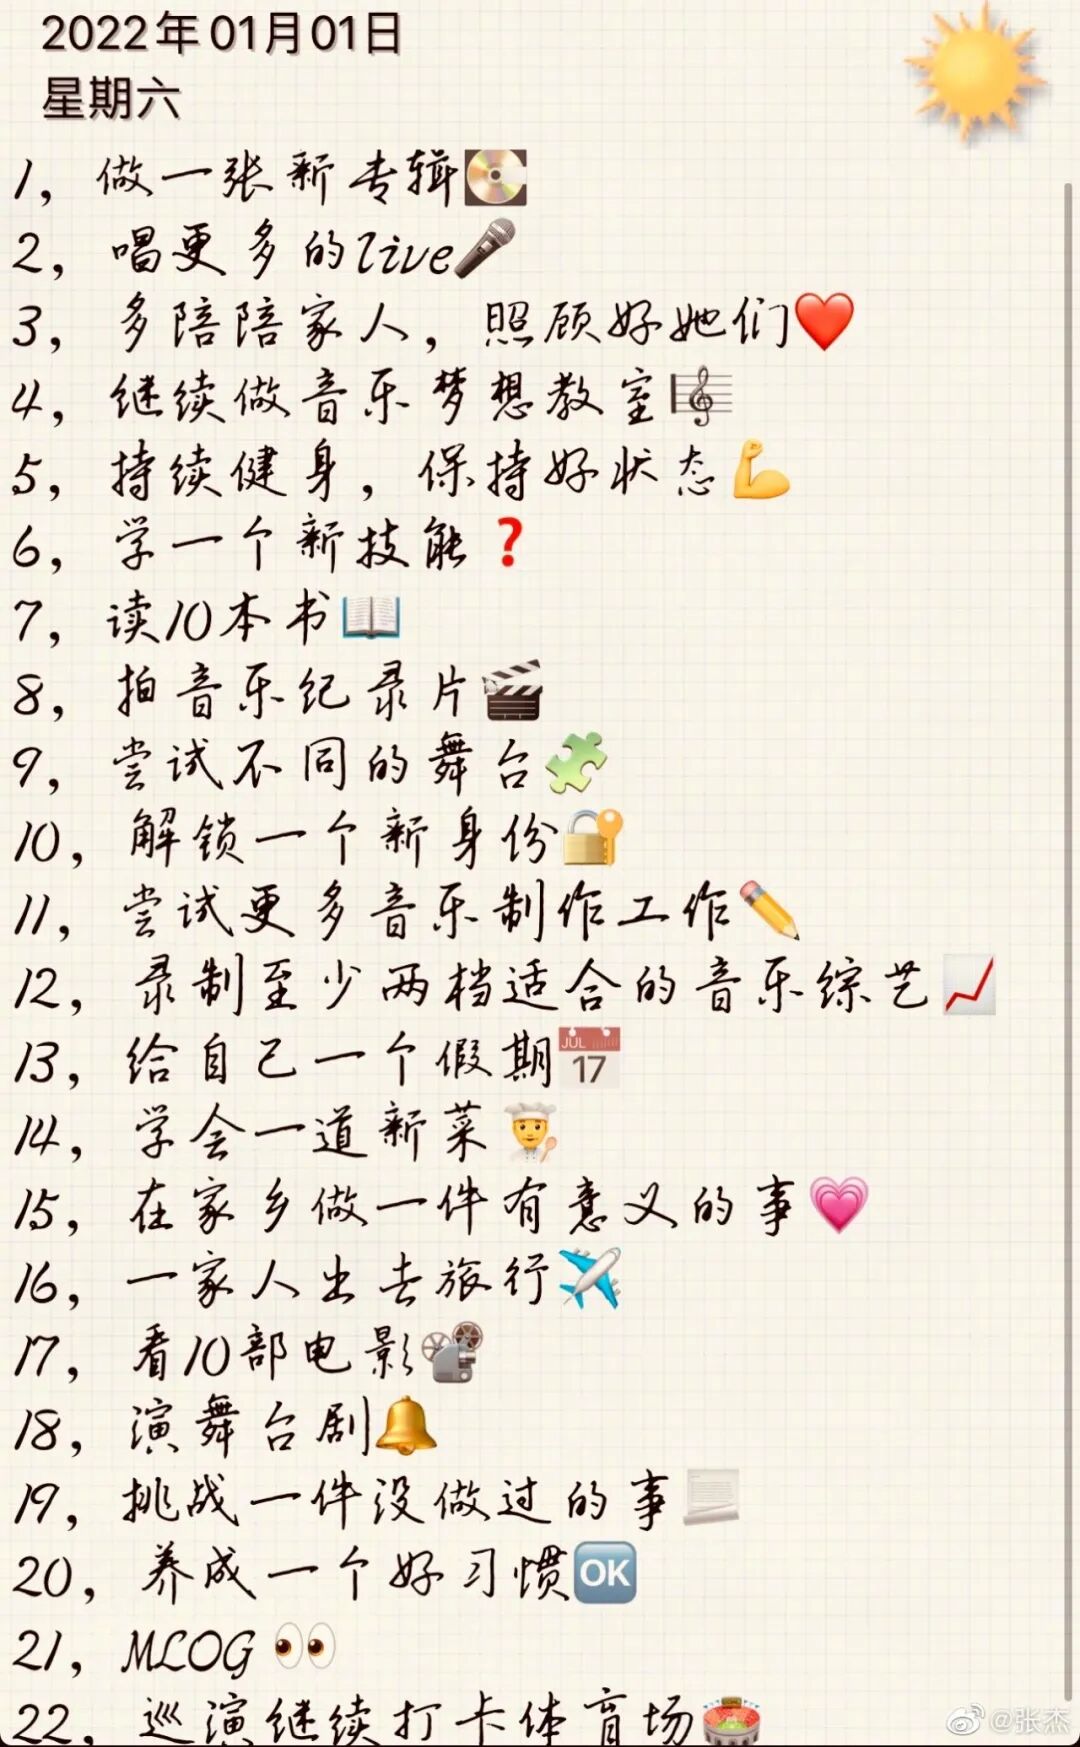 2022年01月01日
星期六
1，做一张新专辑💽
2，唱更多的live🎤
3，多陪陪家人，照顾好她们❤️
4，继续做音乐梦想教室🎼
5，持续健身，保持好状态💪
6，学一个新技能❓
7，读10本书📖
8，拍音乐纪录片🎬
9，尝试不同的舞台🧩
10，解锁一个新身份🔐
11，尝试更多音乐制作工作✏️
12，录制至少两档适合的音乐综艺📈
13，给自己一个假期📅 JUL 17
14，学会一道新菜👨‍🍳
15，在家乡做一件有意义的事💗
16，一家人出去旅行✈️
17，看10部电影📽️
18，演舞台剧🔔
19，挑战一件没做过的事📃
20，养成一个好习惯🆗
21，MLOG👀
22，巡演继续打卡体育场🏟️
@张杰